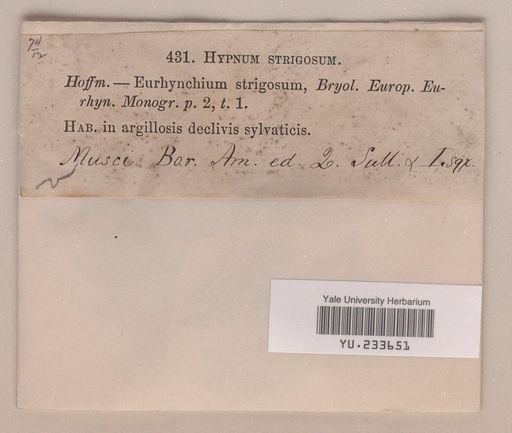 431. HYPNUM STRIGOSUM.
Hoffm. — Eurhynchium strigosum, Bryol. Europ. Eu-
rhyn. Monogr. p. 2, t. 1.
HAB. in argillosis declivis sylvaticis.
Musci Bor. Am. ed. 2. Sull. & Lsqx.
Yale University Herbarium
YU.233651